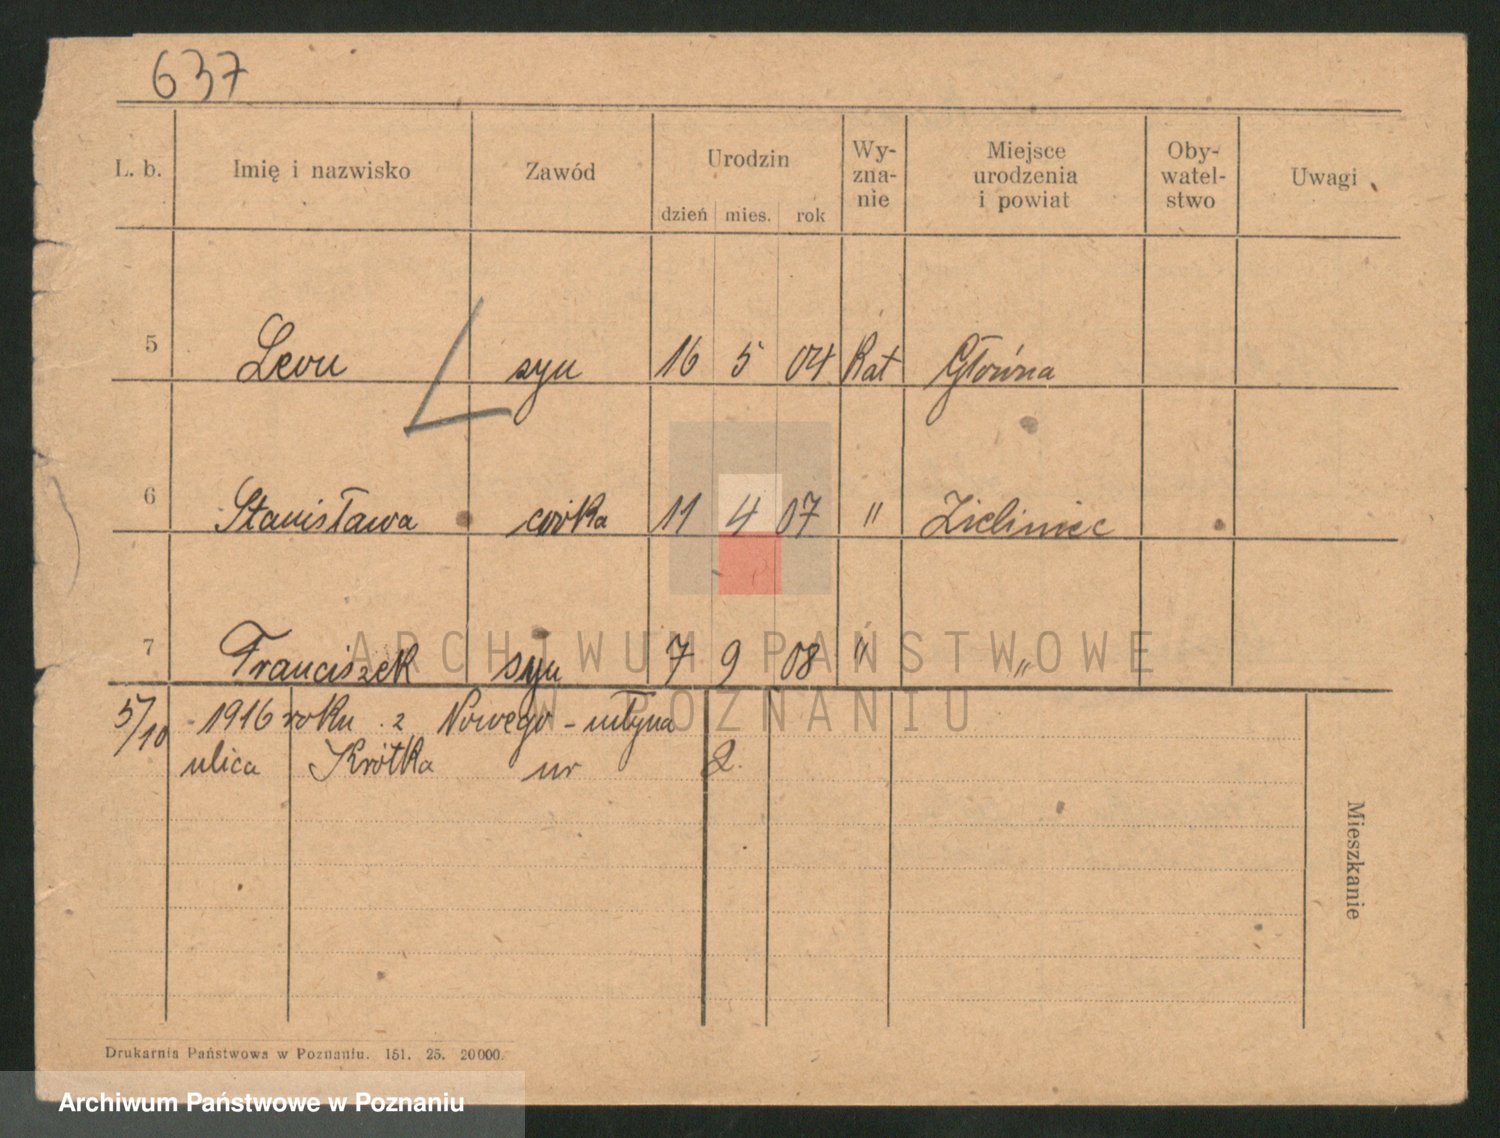 637
L. b. Imię i nazwisko Zawód Urodzin Wy- zna- nie Miejsce urodzenia i powiat Oby- watel- stwo Uwagi
dzień mies. rok
5 Leon syn 16 5 04 Kat Główna
6 Stanisława córka 11 4 07 " Zieliniec
7 Franciszek syn 7 9 08 " "
ARCHIWUM PAŃSTWOWE
W POZNANIU
5/10 1916 roku z Nowego-młyna
ulica Krótka nr 2.
Mieszkanie
Drukarnia Państwowa w Poznaniu. 151. 25. 20000.
Archiwum Państwowe w Poznaniu